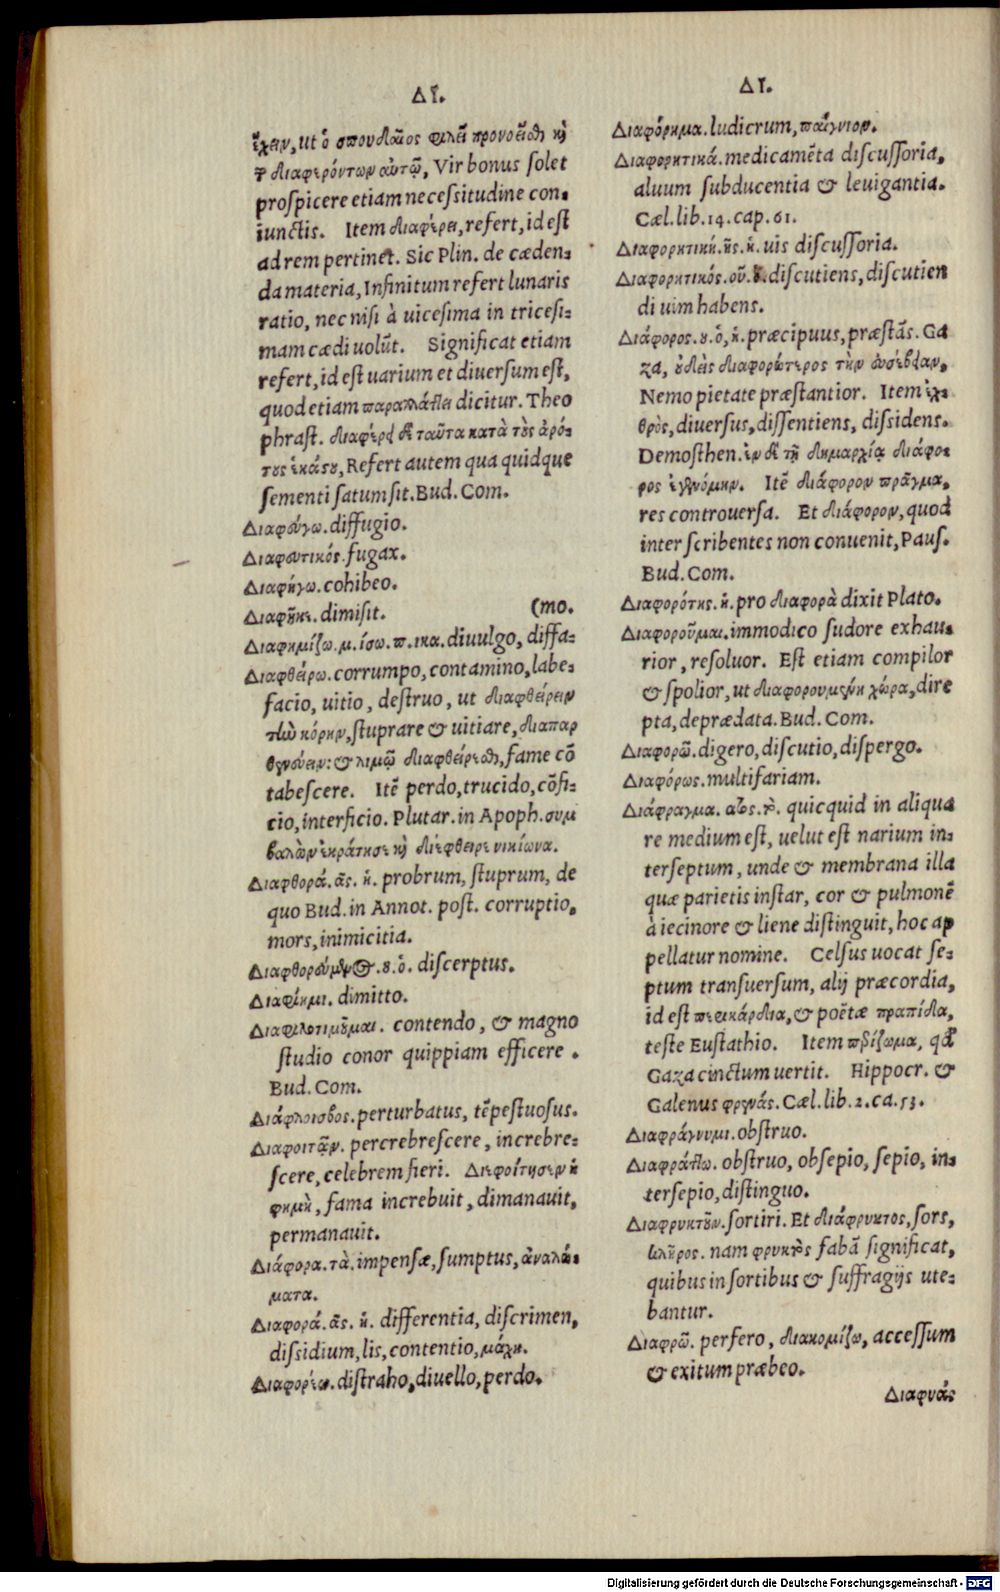 ΔΙ.
ἔχειν, ut ὁ σπουδαῖος φιλεῖ προνοεῖσθαι καὶ
τῶν διαφερόντων αὐτῷ, Vir bonus solet
prospicere etiam necessitudine con-
iunctis. Item διαφέρει, refert, id est
ad rem pertinet. Sic Plin. de cæden-
da materia, Infinitum refert lunaris
ratio, nec nisi à uicesima in tricesi-
mam cædi uolūt. Significat etiam
refert, id est uarium et diuersum est,
quod etiam παραλλάττει dicitur. Theo
phrast. διαφέρει δὲ ταῦτα κατὰ τοὺς ἀρό-
τους ἑκάστου, Refert autem qua quidque
sementi satum sit. Bud. Com.
Διαφεύγω. diffugio.
Διαφευτικός. fugax.
Διαφήγω. cohibeo.
Διαφῆκε. dimisit. (mo.
Διαφημίζω. μ. ίσω. π. ικα. diuulgo, diffa-
Διαφθείρω. corrumpo, contamino, labe-
facio, uitio, destruo, ut διαφθείρειν
τὴν κόρην, stuprare & uitiare, διαπαρ
θενεύειν: & λιμῷ διαφθείρεσθαι, fame cō
tabescere. Itē perdo, trucido, cōfi-
cio, interficio. Plutar. in Apoph. συμ
βαλὼν ἐκράτησε καὶ διέφθειρε νικίωνα.
Διαφθορά. ᾶς. ἡ. probrum, stuprum, de
quo Bud. in Annot. post. corruptio,
mors, inimicitia.
Διαφθορούμενος. ου. ὁ. discerptus.
Διαφίημι. dimitto.
Διαφιλοτιμοῦμαι. contendo, & magno
studio conor quippiam efficere.
Bud. Com.
Διάφλοισβος. perturbatus, tēpestuosus.
Διαφοιτᾷν. percrebrescere, increbre-
scere, celebrem fieri. Διεφοίτησεν ἡ
φημὴ, fama increbuit, dimanauit,
permanauit.
Διάφορα. τὰ. impensæ, sumptus, ἀναλώ-
ματα.
Διαφορά. ᾶς. ἡ. differentia, discrimen,
dissidium, lis, contentio, μάχη.
Διαφορέω. distraho, diuello, perdo.
ΔΙ.
Διαφόρημα. ludicrum, παίγνιον.
Διαφορητικά. medicamēta discussoria,
aluum subducentia & leuigantia.
Cæl. lib. 14. cap. 61.
Διαφορητική. ῆς. ἡ. uis discussoria.
Διαφορητικός. οῦ. ὁ. discutiens, discutien
di uim habens.
Διάφορος. ου. ὁ, ἡ. præcipuus, præstās. Ga
za, οὐδεὶς διαφορώτερος τὴν εὐσέβειαν,
Nemo pietate præstantior. Item ἐχ-
θρὸς, diuersus, dissentiens, dissidens.
Demosthen. ἐν δὲ τῇ δημαρχίᾳ διάφο-
ρος ἐγενόμην. Itē διάφορον πρᾶγμα,
res controuersa. Et διάφορον, quod
inter scribentes non conuenit, Paus.
Bud. Com.
Διαφορότης. ἡ. pro διαφορὰ dixit Plato.
Διαφοροῦμαι. immodico sudore exhau-
rior, resoluor. Est etiam compilor
& spolior, ut διαφορουμένη χώρα, dire
pta, deprædata. Bud. Com.
Διαφορῶ. digero, discutio, dispergo.
Διαφόρως. multifariam.
Διάφραγμα. ατος. τὸ. quicquid in aliqua
re medium est, uelut est narium in-
terseptum, unde & membrana illa
quæ parietis instar, cor & pulmonē
à iecinore & liene distinguit, hoc ap
pellatur nomine. Celsus uocat se-
ptum transuersum, alij præcordia,
id est περικάρδια, & poëtæ πραπίδια,
teste Eustathio. Item πδίζωμα, qđ
Gaza cinctum uertit. Hippocr. &
Galenus φρενάς. Cæl. lib. 2. ca. 53.
Διαφράγνυμι. obstruo.
Διαφράττω. obstruo, obsepio, sepio, in-
tersepio, distinguo.
Διαφρυκτοῦν. sortiri. Et διάφρυκτος, sors,
κλῆρος. nam φρυκτὸς fabā significat,
quibus in sortibus & suffragijs ute-
bantur.
Διαφρῶ. perfero, διακομίζω, accessum
& exitum præbeo.
Διαφυάς
Digitalisierung gefördert durch die Deutsche Forschungsgemeinschaft - DFG